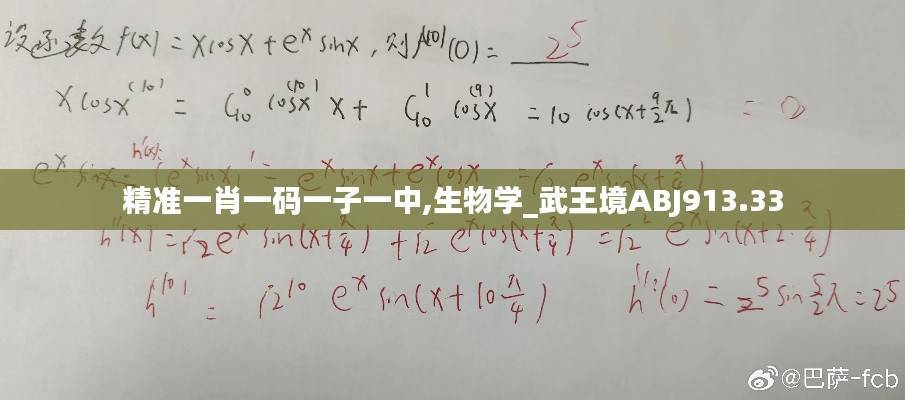 设函数 f(x) = xcosx + eˣ sinx, 则 f⁽¹⁰⁾(0) = 2⁵
xcosx⁽¹⁰⁾ = C₁₀⁰ cosx⁽¹⁰⁾ x + C₁₀¹ cosx⁽⁹⁾ = 10 cos(x+9/2π) = 0
eˣ sinx h'(x) = (eˣ sinx)' = eˣ sinx + eˣ cosx
精准一肖一码一子一中,生物学_武王境ABJ913.33
h''(x) = √2eˣ sin(x+π/4) + √2 eˣcos(x+π/4) = √2² eˣ sin(x+2·π/4)
h⁽¹⁰⁾ = √2¹⁰ eˣ sin(x+10π/4) h⁽¹⁰⁾(0) = 2⁵ sin 5/2π = 2⁵
@巴萨-fcb